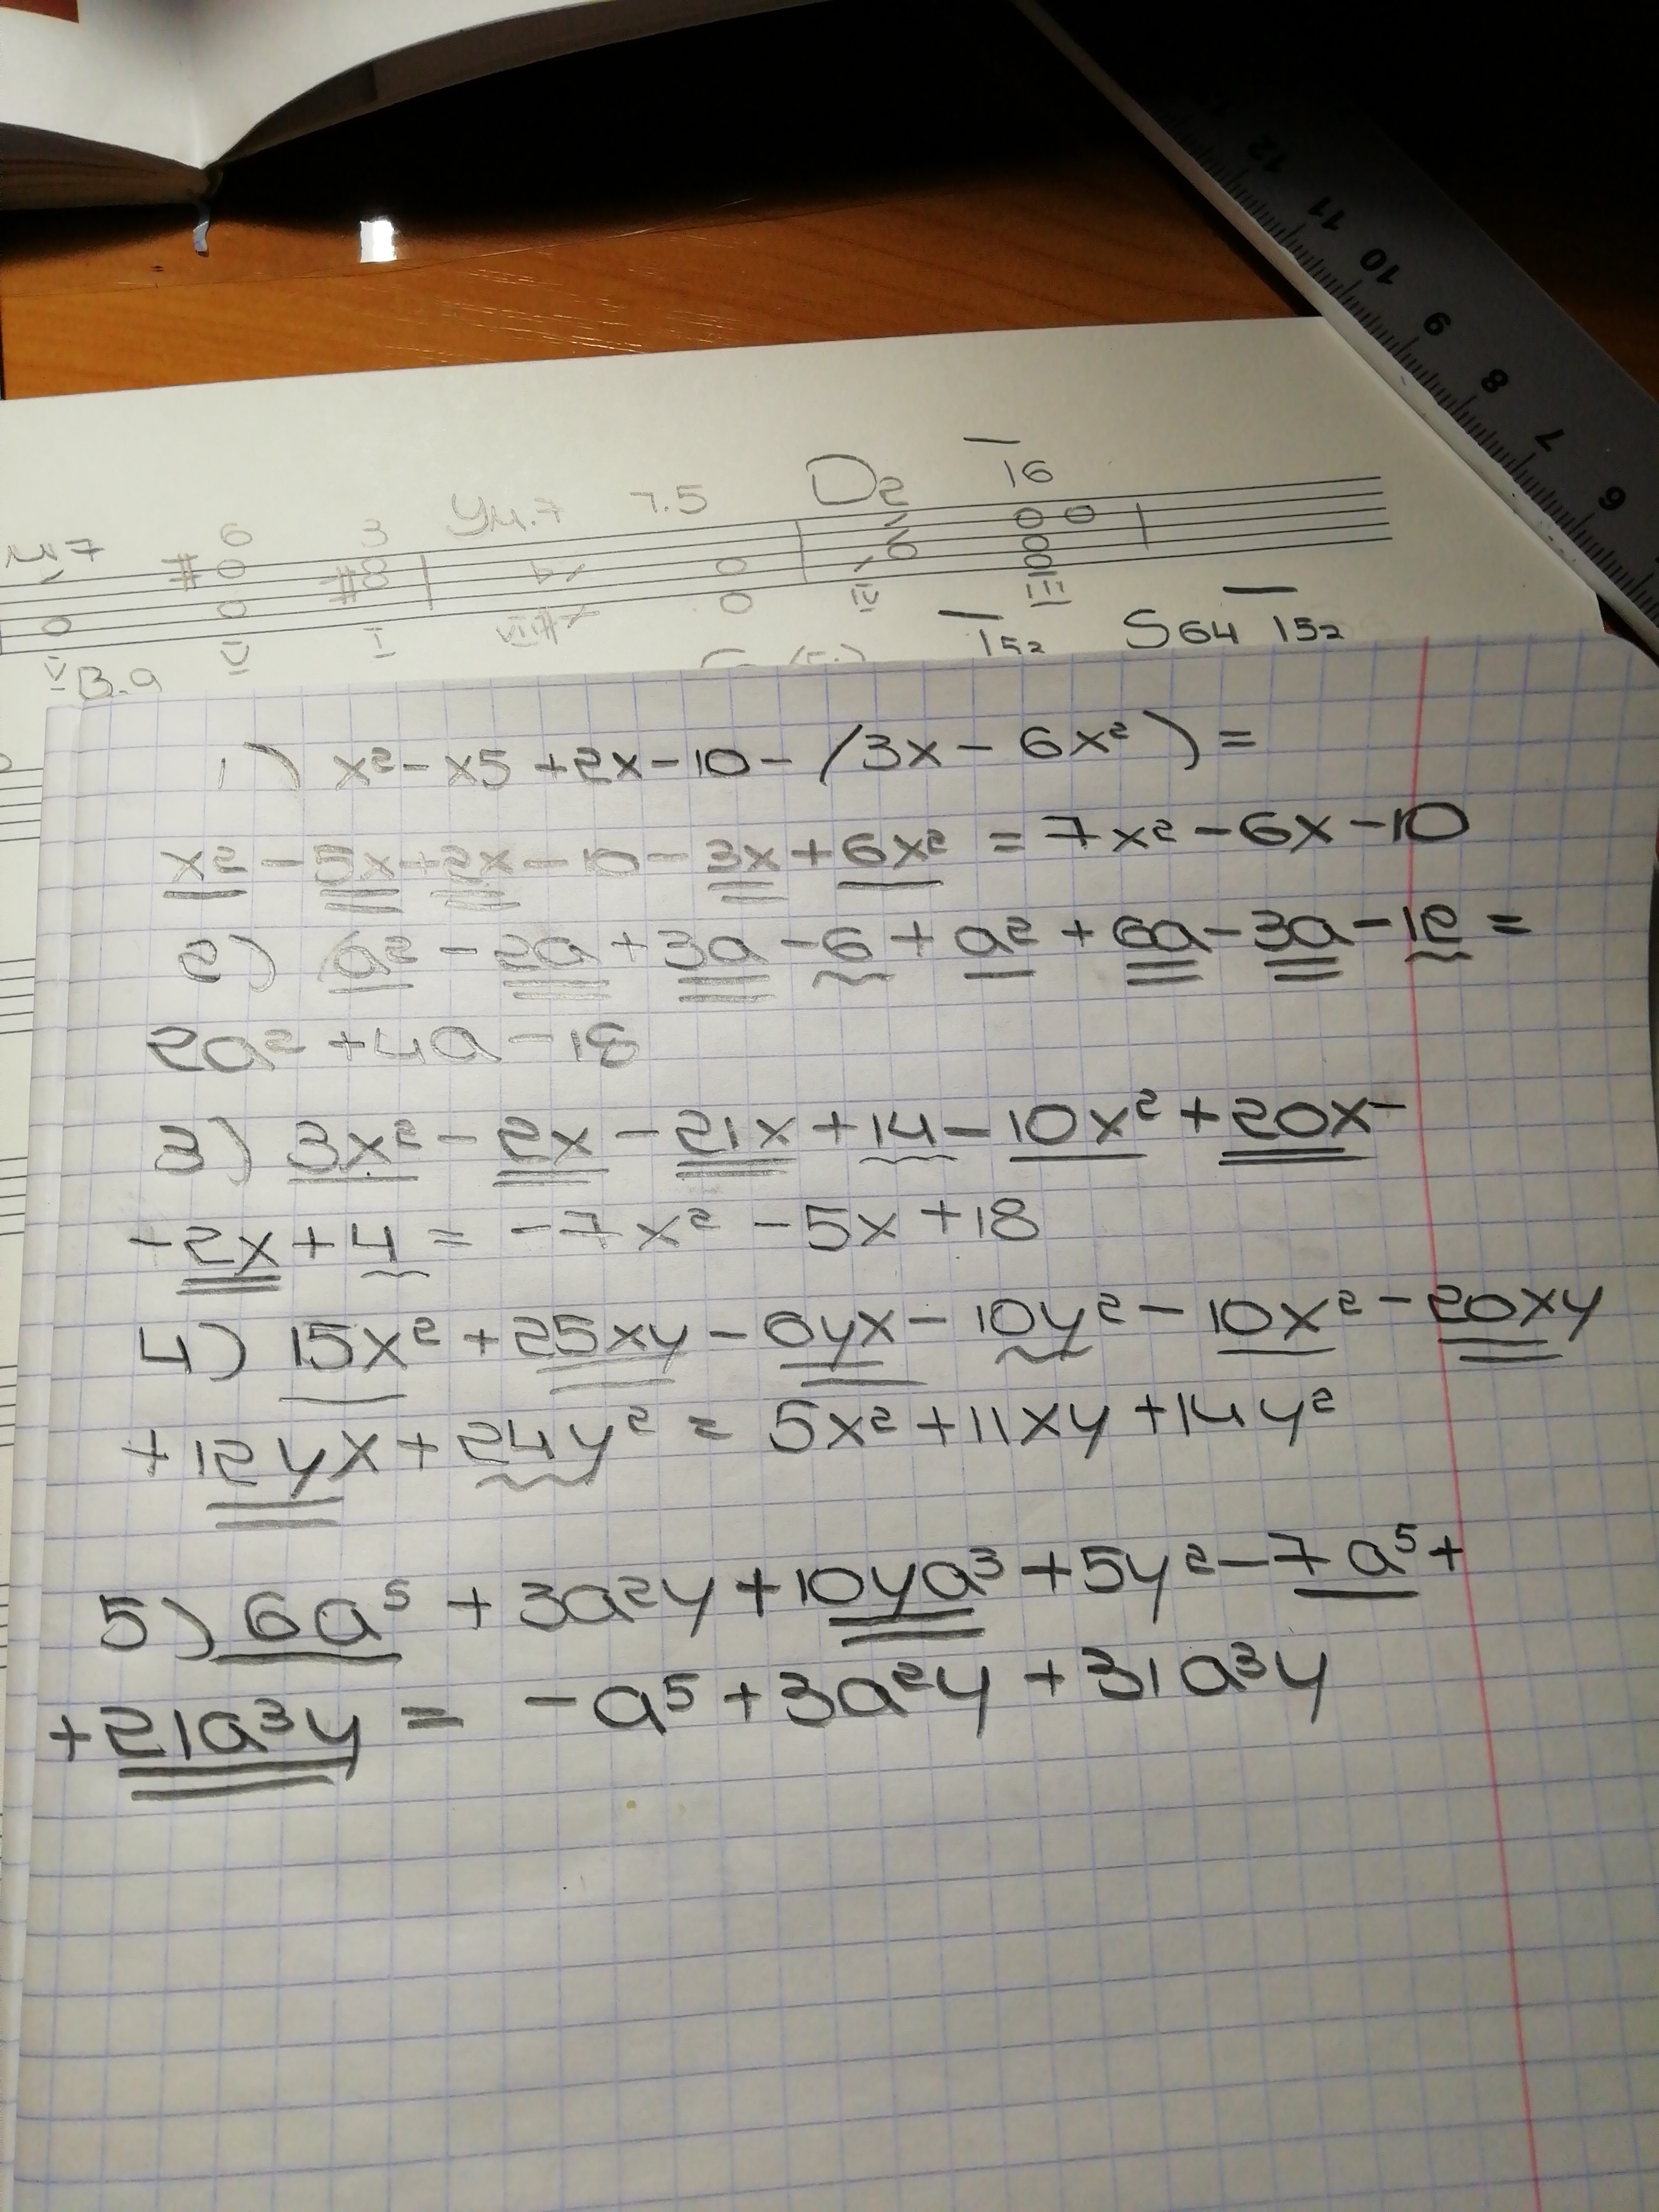 12 11 10 9 8 7 6
D2 16
6 3 Ум.7 7.5
V V I VII# IV III
152 S64 152
B.9
1) x² - x5 + 2x - 10 - (3x - 6x²) =
x² - 5x + 2x - 10 - 3x + 6x² = 7x² - 6x - 10
2) a² - 2a + 3a - 6 + a² + 6a - 3a - 12 =
2a² + 4a - 18
3) 3x² - 2x - 21x + 14 - 10x² + 20x -
- 2x + 4 = -7x² - 5x + 18
4) 15x² + 25xy - 6yx - 10y² - 10x² - 20xy
+ 12yx + 24y² = 5x² + 11xy + 14y²
5) 6a⁵ + 3a²y + 10ya³ + 5y² - 7a⁵ +
+ 21a³y = -a⁵ + 3a²y + 31a³y